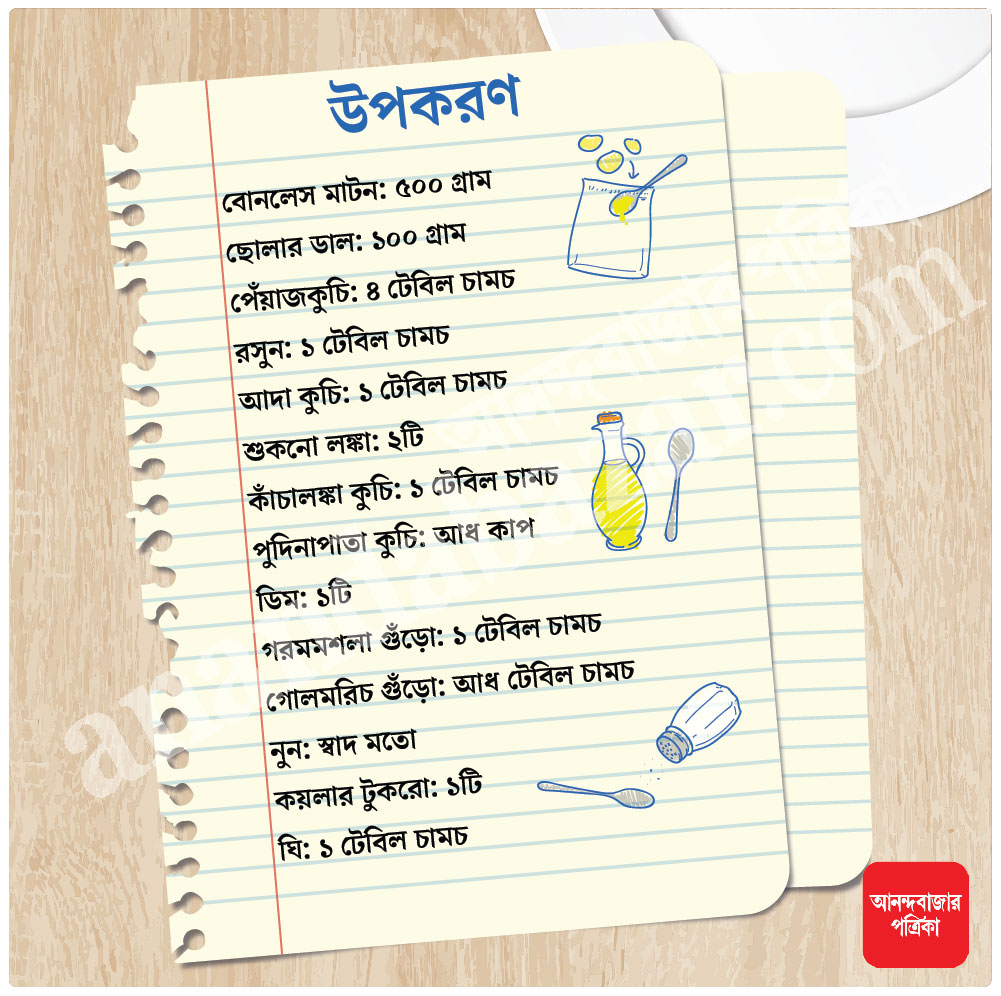 উপকরণ
বোনলেস মাটন: ৫০০ গ্রাম
ছোলার ডাল: ১০০ গ্রাম
পেঁয়াজকুচি: ৪ টেবিল চামচ
রসুন: ১ টেবিল চামচ
আদা কুচি: ১ টেবিল চামচ
শুকনো লঙ্কা: ২টি
কাঁচালঙ্কা কুচি: ১ টেবিল চামচ
পুদিনাপাতা কুচি: আধ কাপ
ডিম: ১টি
গরমমশলা গুঁড়ো: ১ টেবিল চামচ
গোলমরিচ গুঁড়ো: আধ টেবিল চামচ
নুন: স্বাদ মতো
কয়লার টুকরো: ১টি
ঘি: ১ টেবিল চামচ
আনন্দবাজার পত্রিকা
anandabazar.com
আনন্দবাজার
পত্রিকা